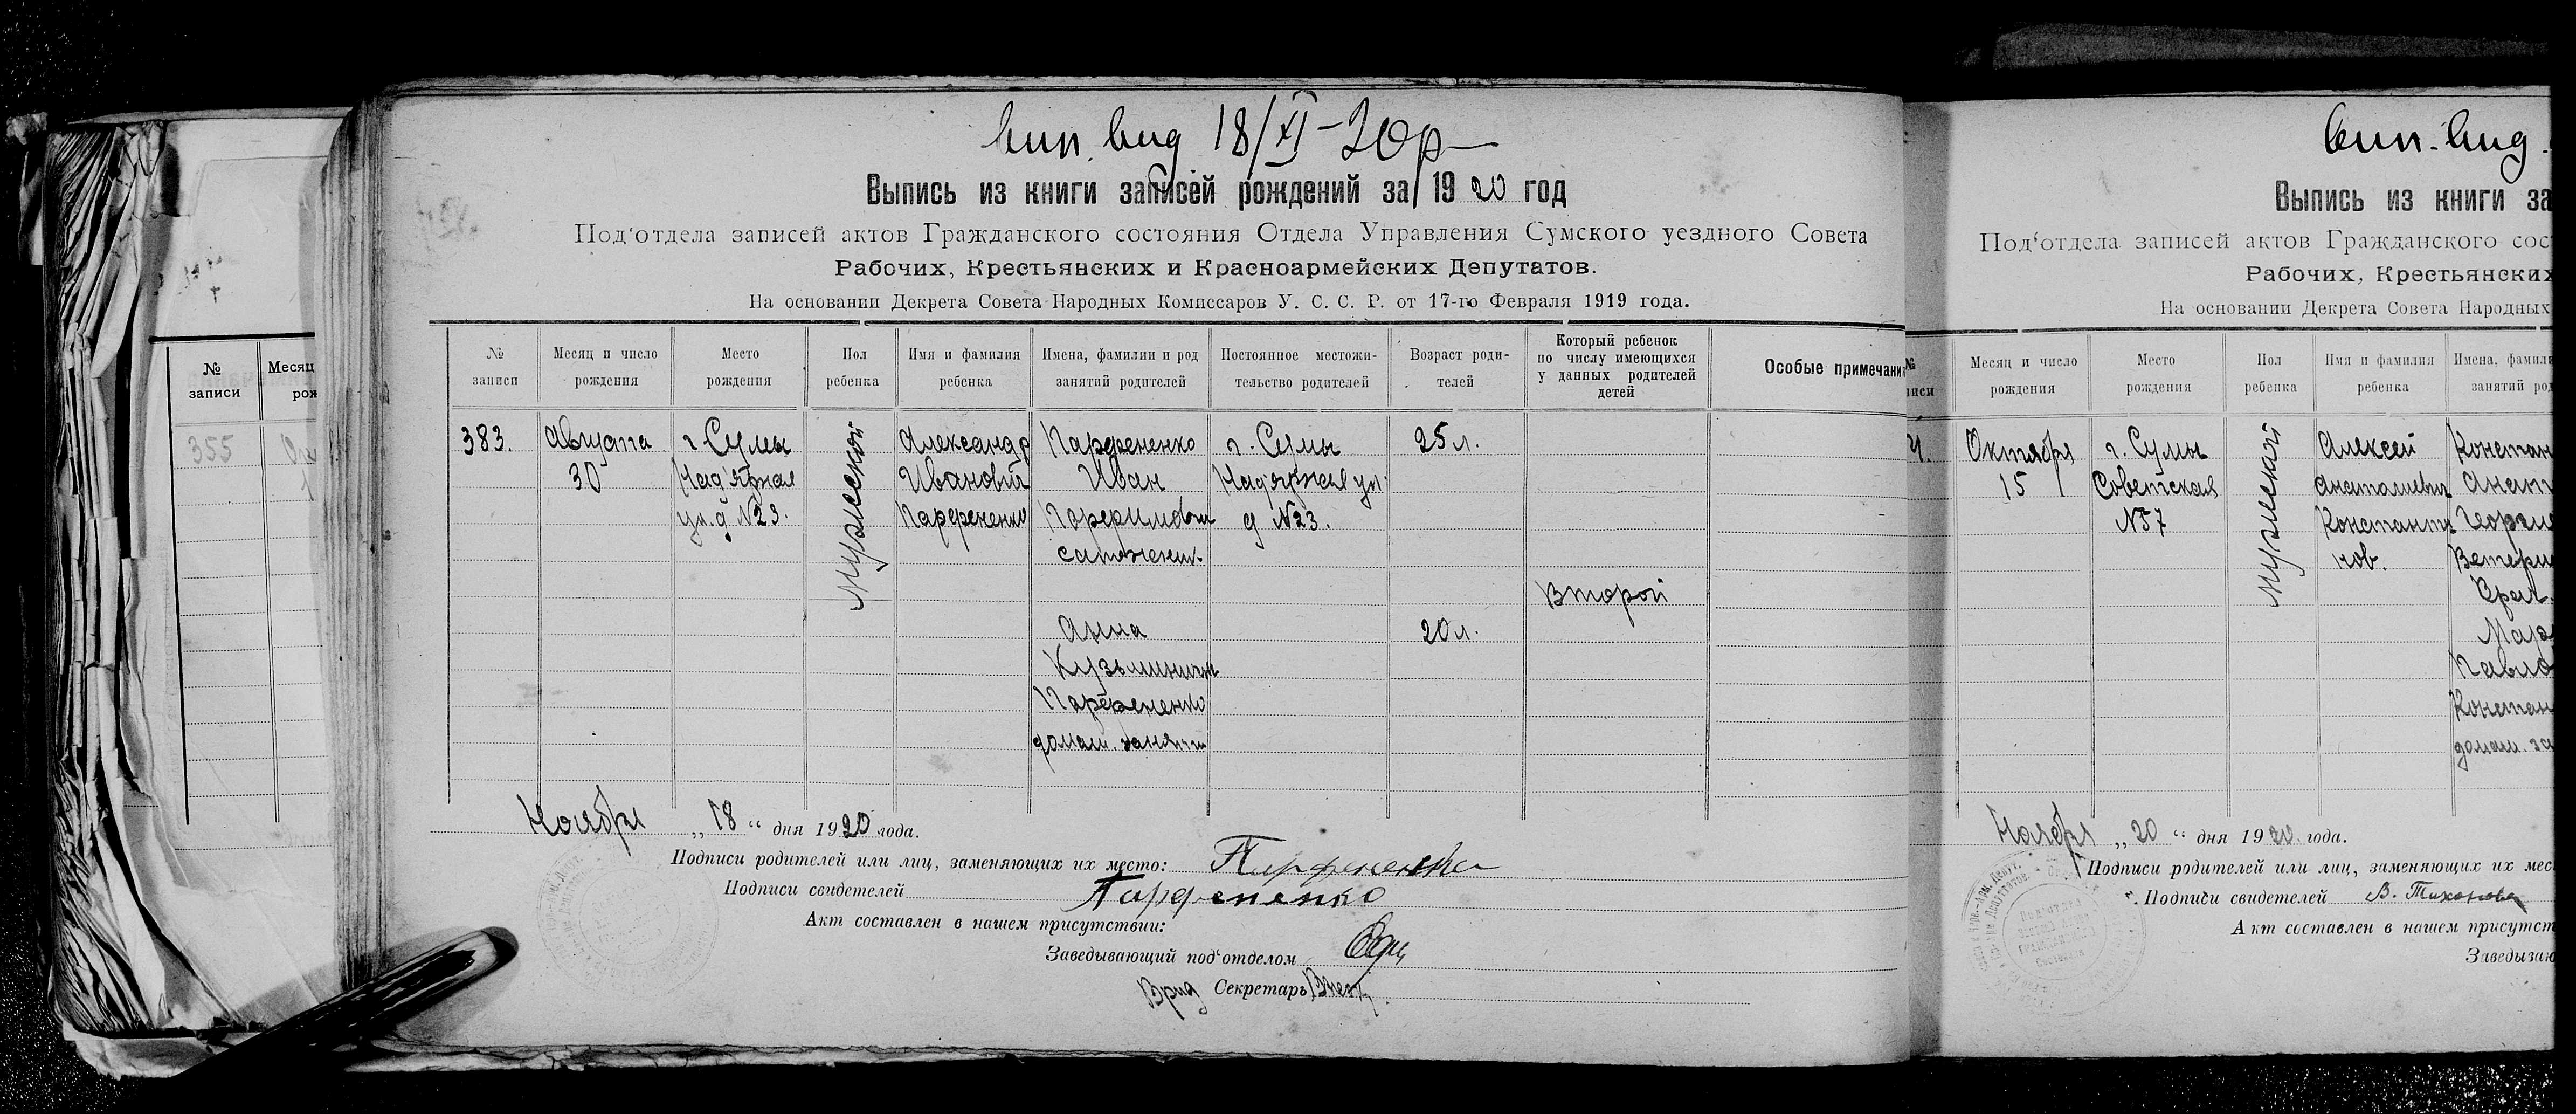 вип. вид 18/XI-20р
Выпись из книги записей рождений за 1920 год
Под‘отдела записей актов Гражданского состояния Отдела Управления Сумского уездного Совета
Рабочих, Крестьянских и Красноармейских Депутатов.
На основании Декрета Совета Народных Комиссаров У. С. С. Р. от 17-го Февраля 1919 года.
№ записи
Месяц и число рождения
Место рождения
Пол ребенка
Имя и фамилия ребенка
Имена, фамилии и род занятий родителей
Постоянное местожительство родителей
Возраст родителей
Который ребенок по числу имеющихся у данных родителей детей
Особые примечани
383.
Августа
30
г. Сумы
ул. д №23.
мужеской
Александр
Иванович
Парфененко
Парфененко
Иван
г. Сумы
д №23.
25 л.
Второй
Анна
20 л.
Парфененко
домаш. занятия
Ноября „18“ дня 1920 года.
Подписи родителей или лиц, заменяющих их место: Парфененко
Подписи свидетелей Парфененко
Акт составлен в нашем присутствии:
Заведывающий под‘отделом
Врид Секретарь
№ записи
Месяц
рож
355
вип. вид.
Выпись из книги за
Под‘отдела записей актов Гражданского сос
Рабочих, Крестьянских
На основании Декрета Совета Народных
№
писи
Месяц и число рождения
Место рождения
Пол ребенка
Имя и фамилия ребенка
Имена, фамили
занятий род
Октября
15
г. Сумы
Советская
№57
мужеский
Алексей
Анатолиевич
Константи
нов.
Констан
Анат
Георги
Ветери
Врач.
Мар
Павло
Констан
домаш. за
Ноября „20“ дня 1920 года.
Подписи родителей или лиц, заменяющих их мес
Подписи свидетелей В. Тихонова
Акт составлен в нашем присутст
Заведываю